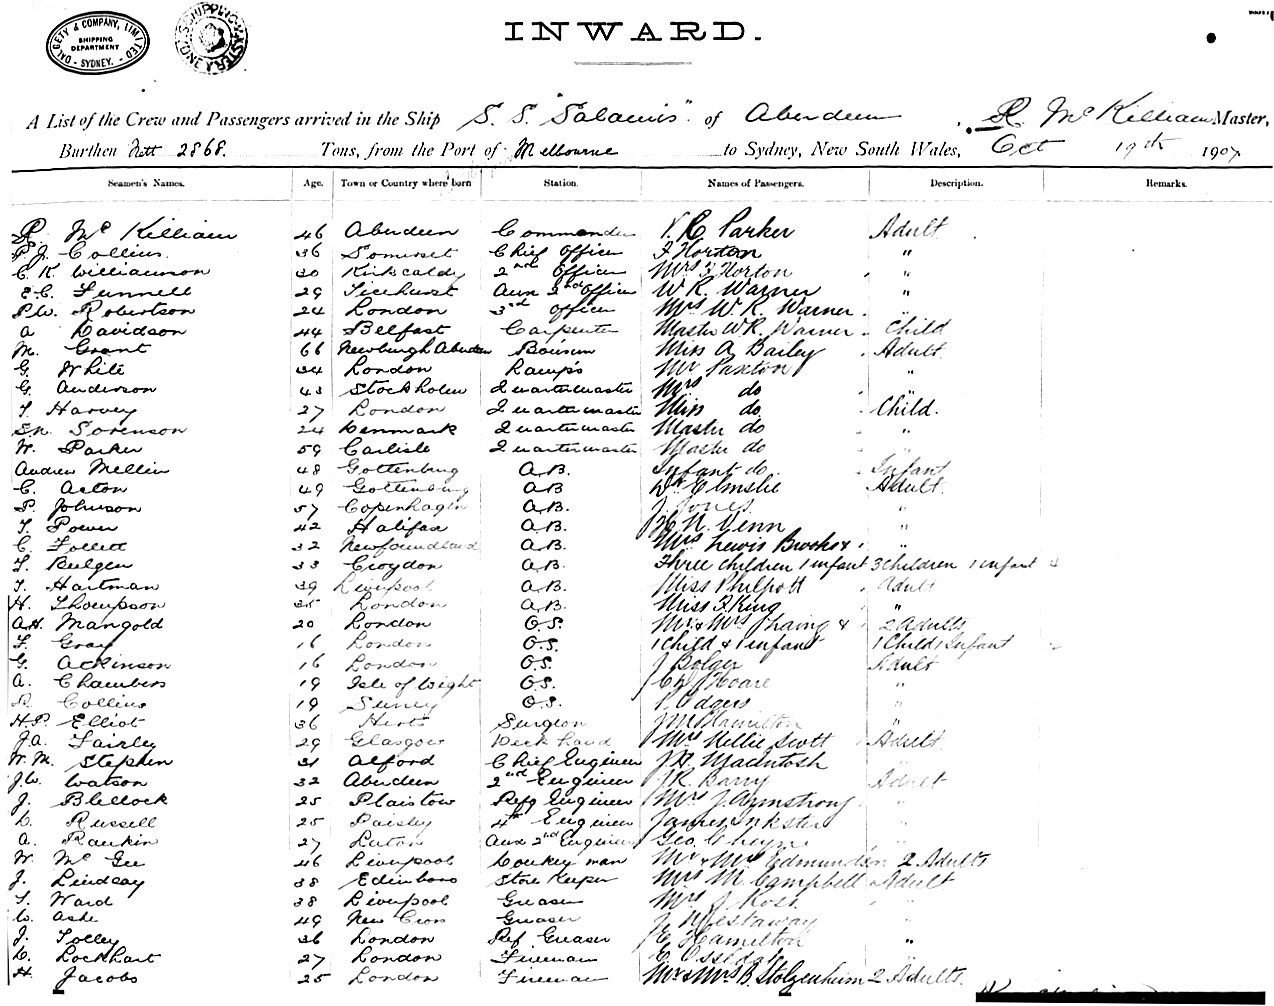 DALGETY & COMPANY, LIMITED
SHIPPING DEPARTMENT
SYDNEY.
INWARD.
A List of the Crew and Passengers arrived in the Ship S. S. "Salamis" of Aberdeen, R McKilliam Master,
Burthen Nett 2868. Tons, from the Port of Melbourne to Sydney, New South Wales, Oct 19th 1907
Seamen's Names. Age. Town or Country where born Station. Names of Passengers. Description. Remarks.
R McKilliam 46 Aberdeen Commander V. C. Parker Adult
P. J. Collins. 36 Somerset Chief Officer F Horton "
C. K Williamson 30 Kirkcaldy 2nd Officer Mrs F Horton "
E. C. Funnell 29 Ticehurst Aux 2nd Officer W R. Warner "
P.W. Robertson 24 London 3rd Officer Mrs W. R. Warner "
A Davidson 44 Belfast Carpenter Master W. R. Warner Child
M. Grant 66 Newburgh Aberdeen Bo'sun Miss A Bailey Adult
G. White 34 London Lamps Mr Paxton "
G. Anderson 43 Stockholm Quartermaster Mrs do "
T Harvey 27 London Quartermaster Miss do Child.
S.N. Sorenson 24 Denmark Quartermaster Master do "
W. Parker 59 Carlisle Quartermaster Master do "
Andrew Mellin 48 Gottenburg A.B. Infant do Infant
C. Acton 49 Gottenburg A.B Dr Elmslie Adult
P. Johnson 57 Copenhagen A.B. J. Jones "
T. Power 42 Halifax A.B. H. N. Venn "
C Follett 32 Newfoundland A.B. Mrs Lewis Brooks & "
T. Bulgen 33 Croydon A.B. Three children 1 infant 3 children 1 infant
T. Hartman 39 Liverpool A.B. Miss Philpott Adult
H. Thompson 35 London A.B. Miss F. King "
A.H. Mangold 20 London O.S. Mr & Mrs Thaing & 2 Adults
F. Gray 16 London O.S. 1 Child & 1 infant 1 Child 1 Infant
G. Ackinson 16 London O.S. J Bolger Adult
A. Chambers 19 Isle of Wight O.S. Hoare "
R. Collins 19 Surrey O.S. Odgers "
H.P. Elliot 36 Herts Surgeon Hamilton "
J.A. Fairley 29 Glasgow Deck hand Mrs Nellie Scott Adult
W. M. Stephen 31 Alford Chief Engineer J. H. Macintosh
J.W. Watson 32 Aberdeen 2nd Engineer J R. Barry Adult
J. Blellock 25 Plaistow Refg Engineer Mrs J. Armstrong "
D. Russell 25 Paisley 4th Engineer James Inkster "
A. Rankin 27 Luton Aux 2nd Engineer Geo. Cheyne "
W. McGee 46 Liverpool Donkeyman Mr & Mrs Edmunden 2 Adults
J. Lindsay 38 Edinboro Store Keeper Mrs M. Campbell Adult
T. Ward 38 Liverpool Greaser Mrs J Ross "
W. Ashe 49 New Cross Greaser J. Westaway "
J. Tolley 36 London Ref. Greaser C Hamilton "
D. Lockhart 27 London Fireman "
H. Jacobs 25 London Fireman Mr & Mrs B. Stolzenheim 2 Adults.